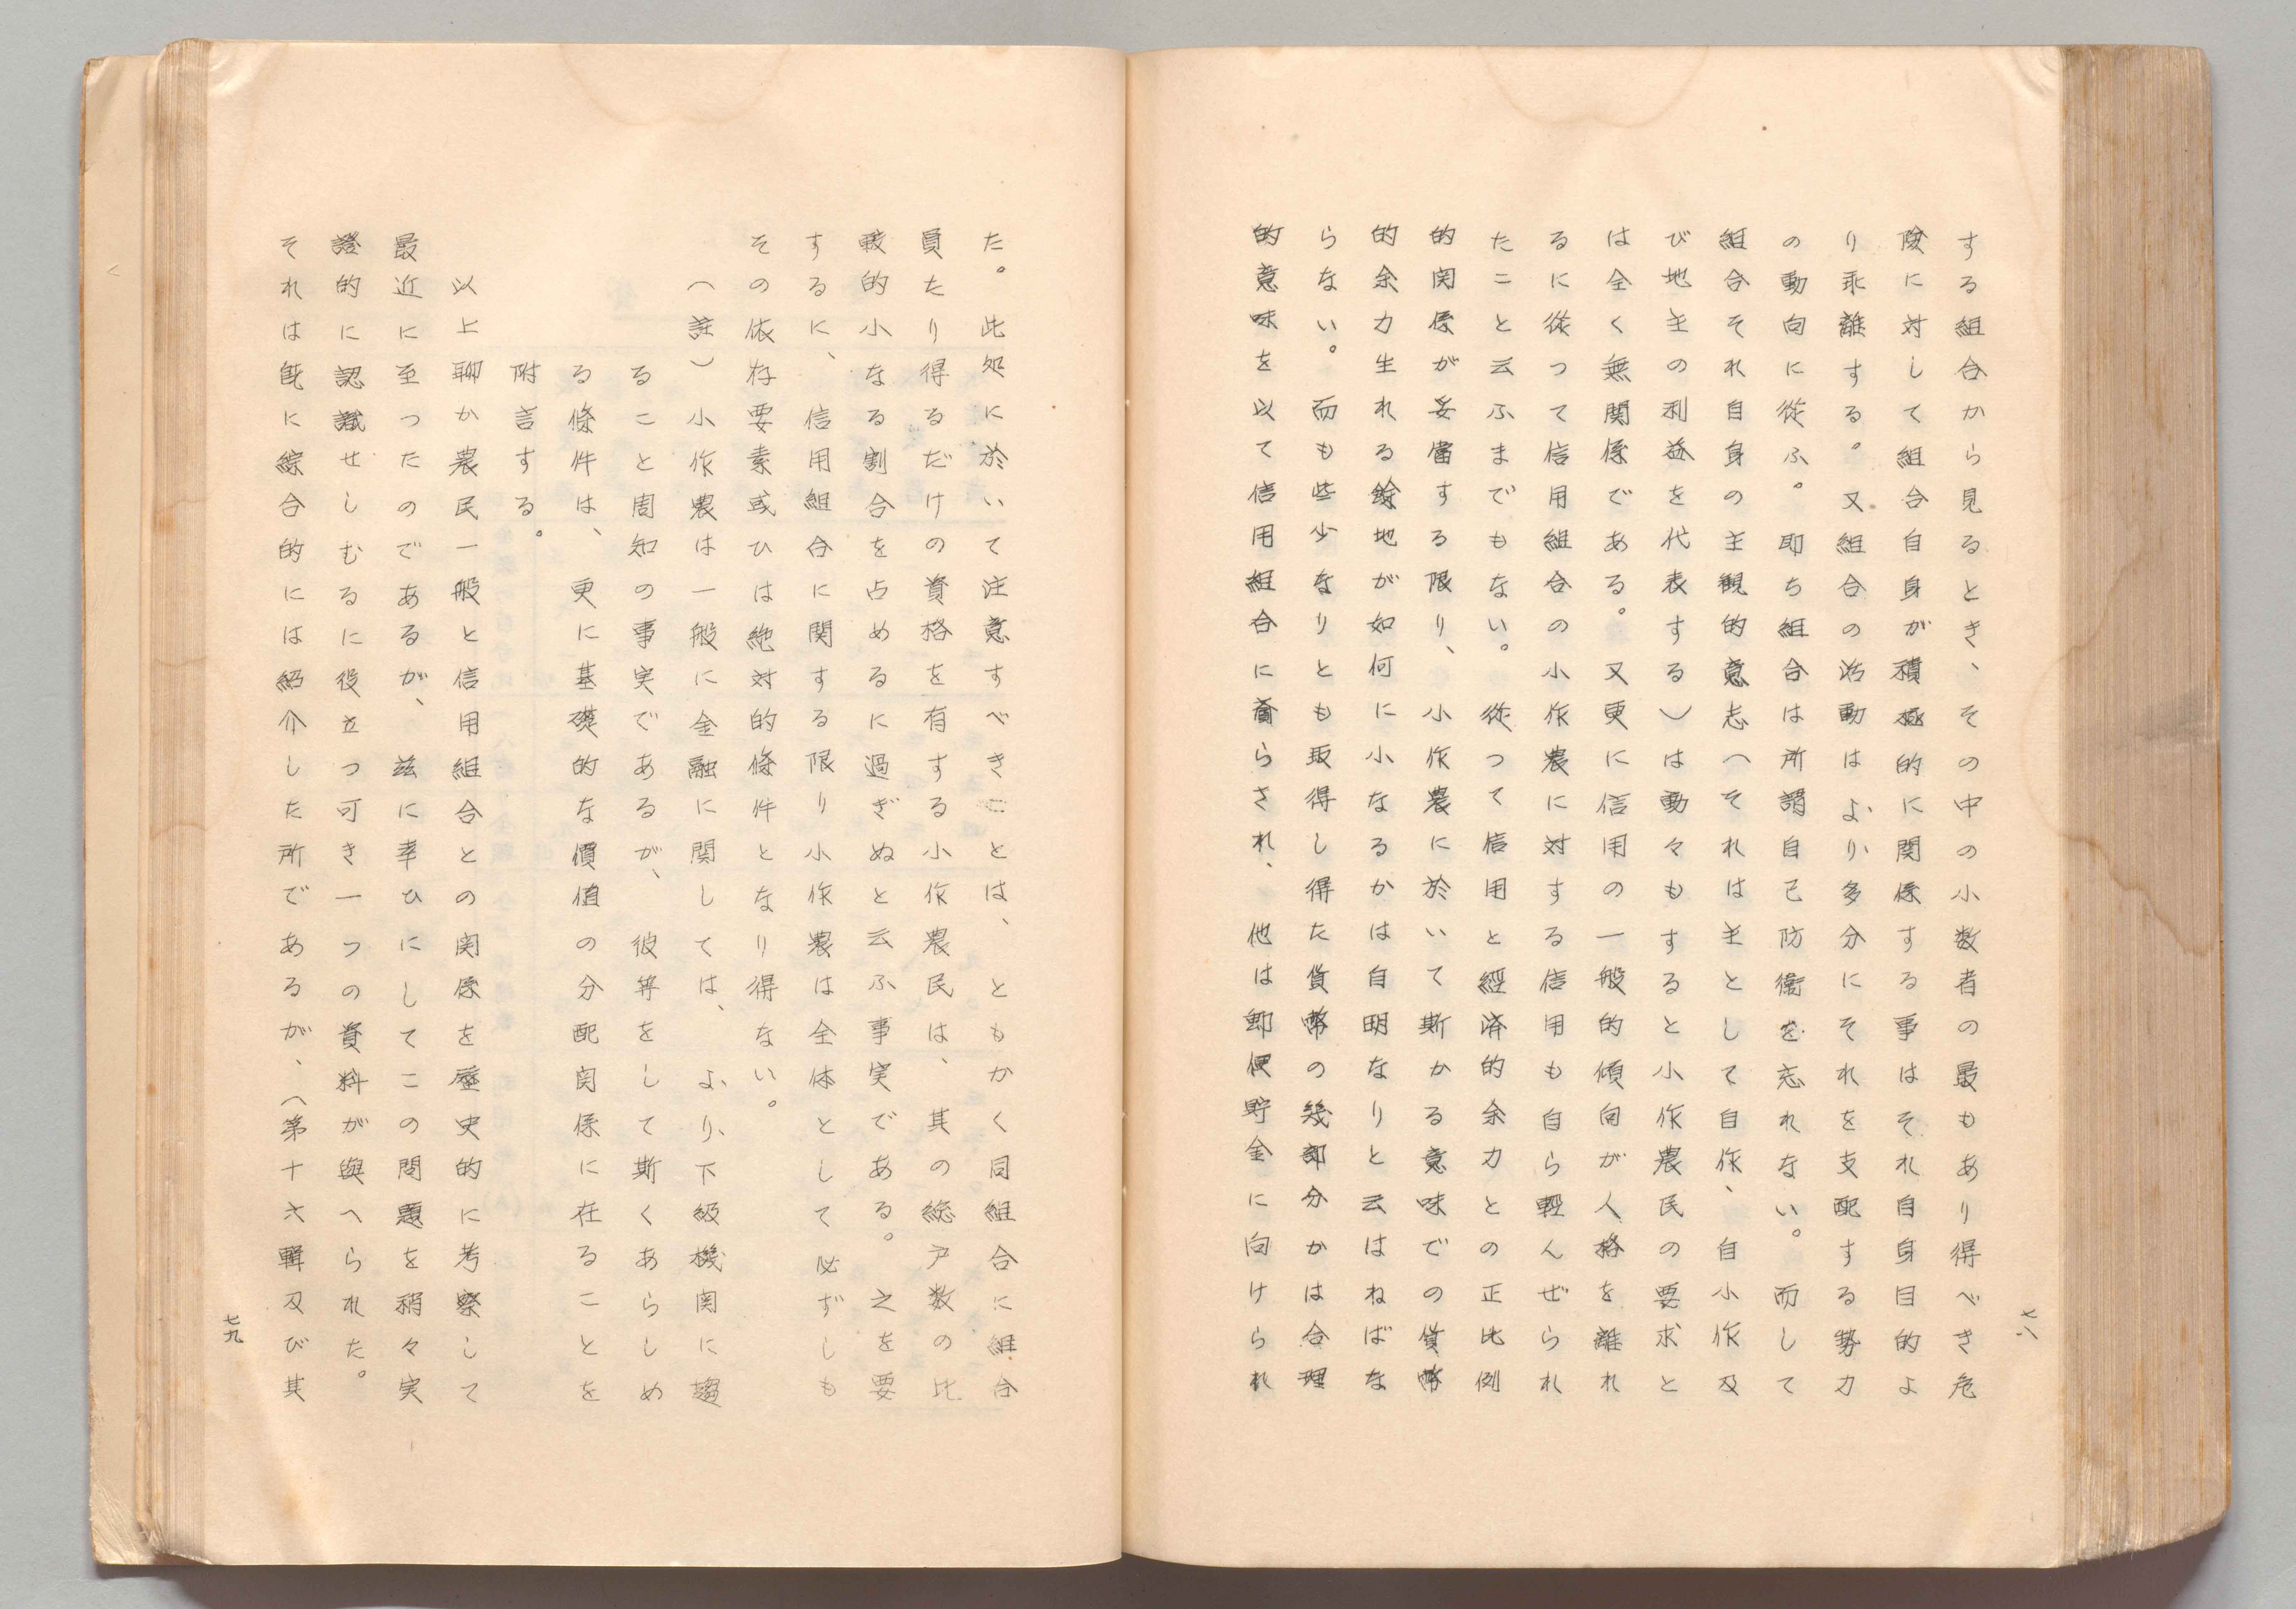 する組合から見るとき、その中の小数者の最もあり得べき危
険に対して組合自身が積極的に関係する事はそれ自身目的よ
り乖離する。又組合の活動はより多分にそれを支配する勢力
の動向に従ふ。即ち組合は所謂自己防衛を忘れない。而して
組合それ自身の主観的意志（それは主として自作、自小作及
び地主の利益を代表する）は動々もすると小作農民の要求と
は全く無関係である。又更に信用の一般的傾向が人格を離れ
るに従つて信用組合の小作農に対する信用も自ら軽んぜられ
たこと云ふまでもない。従つて信用と経済的余力との正比例
的関係が妥當する限り、小作農に於いて斯かる意味での貨幣
的余力生れる餘地が如何に小なるかは自明なりと云はねばな
らない。而も些少なりとも取得し得た貨幣の幾部分かは合理
的意味を以て信用組合に齎らされ、他は郵便貯金に向けられ
七八
た。此処に於いて注意すべきことは、ともかく同組合に組合
員たり得るだけの資格を有する小作農民は、其の総戸数の比
較的小なる割合を占めるに過ぎぬと云ふ事実である。之を要
するに、信用組合に関する限り小作農は全体として必ずしも
その依存要素或ひは絶対的條件となり得ない。
（註）小作農は一般に金融に関しては、より下級機関に趨
ること周知の事実であるが、彼等をして斯くあらしめ
る條件は、更に基礎的な價値の分配関係に在ることを
附言する。
以上聊か農民一般と信用組合との関係を歴史的に考察して
最近に至つたのであるが、茲に幸ひにしてこの問題を稍々実
證的に認識せしむるに役立つ可き一つの資料が與へられた。
それは既に綜合的には紹介した所であるが、（第十六輯及び其
七九